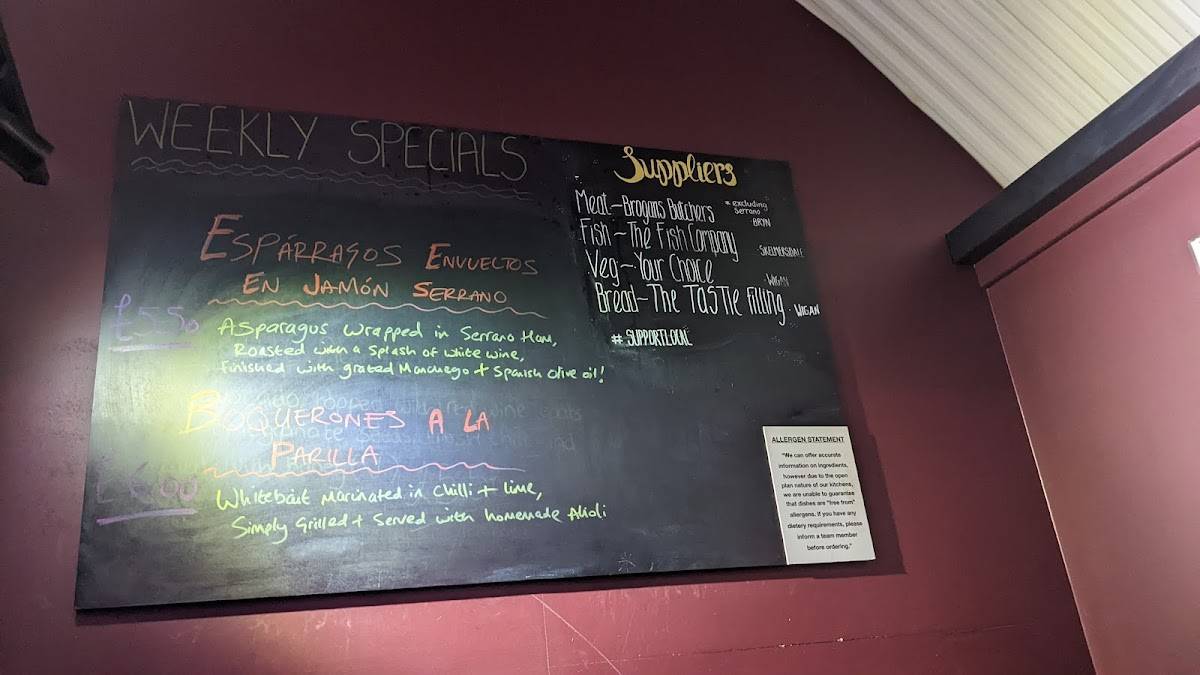 WEEKLY SPECIALS
ESPÁRRAGOS ENVUELTOS
EN JAMÓN SERRANO
£5.50
Asparagus wrapped in Serrano Ham,
Roasted with a splash of white wine,
finished with grated Manchego + Spanish olive oil!
BOQUERONES A LA
PARILLA
Whitebait marinated in Chilli + lime,
Simply Grilled + Served with homemade Alioli
Suppliers
Meat - Brogans Butchers * excluding Serrano BRYN
Fish - The Fish Company SKELMERSDALE
Veg - Your Choice WIGAN
Bread - The TaSTie Filling. WIGAN
# SUPPORTLOCAL
ALLERGEN STATEMENT
"We can offer accurate
information on ingredients,
however due to the open
plan nature of our kitchens,
we are unable to guarantee
that dishes are "free from"
allergens. If you have any
dietary requirements, please
inform a team member
before ordering."